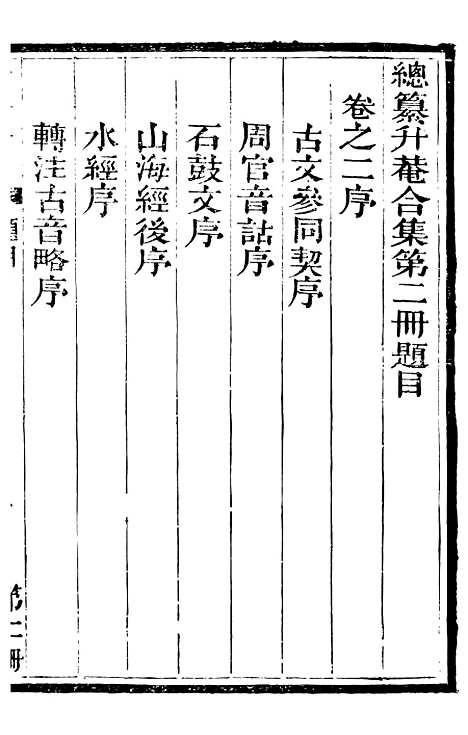 總纂升菴合集第二冊題目
卷之二序
古文參同契序
周官音詁序
石鼓文序
山海經後序
水經序
轉注古音略序
第二冊